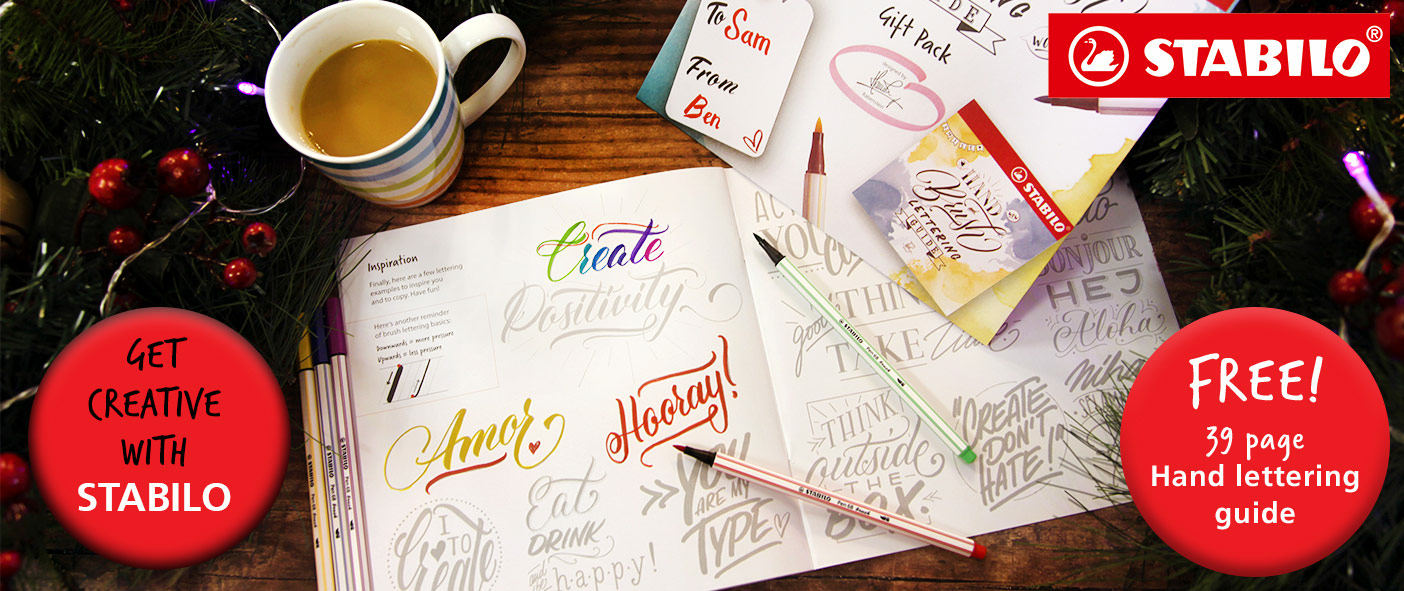 To Sam
From
Ben
GUIDE
Gift Pack
designed by
STABILO®
HAND
Brush
LETTERING
GUIDE
STABILO
Inspiration
Finally, here are a few lettering
examples to inspire you
and to copy. Have fun!
Here's another reminder
of brush lettering basics:
Downwards = more pressure
Upwards = less pressure
Create
Positivity
Amor
Hooray!
I
TO
Create
Eat
DRINK
and
happy!
YOU
ARE MY
TYPE
YOU
good
THINK
TAKE
THINK
outside
THE
BOX
BONJOUR
HEJ
Aloha
"CREATE
DON'T
HATE!"
STABILO Pen 68 brush
STABILO Pen 68 brush
STABILO
STABILO
STABILO
GET
CREATIVE
WITH
STABILO
FREE!
39 page
Hand lettering
guide